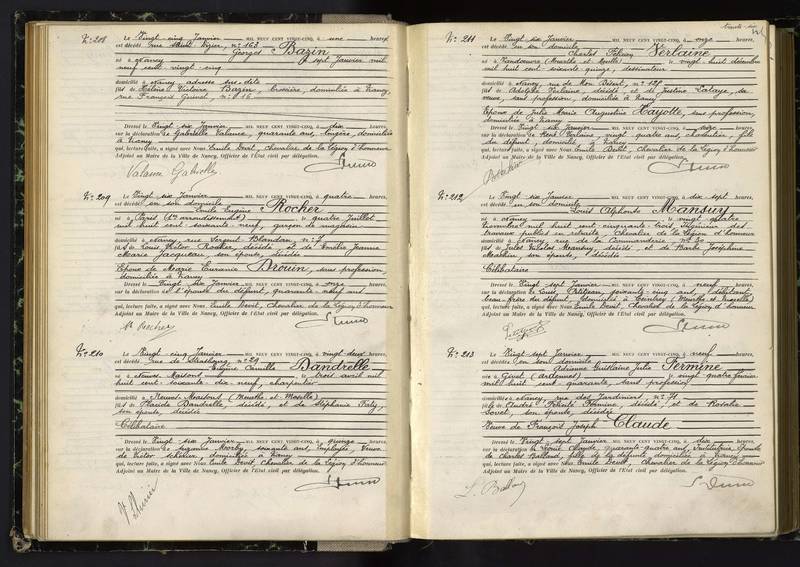 N° 208
Le Vingt cinq Janvier MIL NEUF CENT VINGT-CINQ, à une heures
est décédé n° 163
Georges Bazin
né à Nancy sept Janvier mil
neuf cent vingt cinq
domicilié à Nancy adresse sus-dite
fils de Victoire Bazin, domiciliée à Nancy,
rue François
Dressé le Vingt six Janvier MIL NEUF CENT VINGT-CINQ, à dix heures,
sur la déclaration de Gabrielle Valance, quarante ans, lingère, domiciliée
à Nancy
qui, lecture faite, a signé avec Nous Emile Devit, Chevalier de la Légion d'honneur
Adjoint au Maire de la Ville de Nancy, Officier de l'Etat civil par délégation.
Valance Gabrielle
N° 209
Le Vingt six Janvier MIL NEUF CENT VINGT-CINQ, à quatre heures,
est décédé en son domicile
Emile Eugène Rocher
né à Paris quatre Juillet
mil huit cent soixante neuf, garçon de magasin
domicilié à Nancy rue Sergent Blandan n° 7
fils de Louis Victor Rocher, décédé et de Amélie Jeanne
Marie Jacqueau, son épouse, décédée
Epoux de Marie Euranie Drouin, sans profession
domiciliée à Nancy
Dressé le Vingt six Janvier MIL NEUF CENT VINGT-CINQ, à onze heures,
sur la déclaration de l'épouse du défunt, quarante neuf ans
qui, lecture faite, a signé avec Nous Emile Devit, Chevalier de la Légion d'honneur
Adjoint au Maire de la Ville de Nancy, Officier de l'Etat civil par délégation.
Rocher
N° 210
Le Vingt cinq Janvier MIL NEUF CENT VINGT-CINQ, à vingt deux heures
est décédé rue de Strasbourg n° 29
Eugène Camille Bandrelle
né à Neuves Maisons trois avril mil
huit cent soixante dix neuf, charpentier
domicilié à Neuves Maisons (Meurthe et Moselle)
fils de Claude Bandrelle, décédé, et de Stéphanie
son épouse, décédée
Célibataire
Dressé le Vingt six Janvier MIL NEUF CENT VINGT-CINQ, à quinze heures,
sur la déclaration de soixante ans, Employée, Veuve
de Victor domiciliée à Nancy
qui, lecture faite, a signé avec Nous Emile Devit, Chevalier de la Légion d'honneur
Adjoint au Maire de la Ville de Nancy, Officier de l'Etat civil par délégation.
N° 211
Le Vingt six Janvier MIL NEUF CENT VINGT-CINQ, à onze heures,
est décédé en son domicile
Charles Verlaine
né à (Meurthe et Moselle) le vingt huit décembre
mil huit cent soixante quinze, dessinateur
domicilié à Nancy rue de Mon Désert, n° 127
fils de Adolphe Verlaine, décédé, et de Justine Lalaye, sa
veuve, sans profession, domiciliée à Nancy
Epoux de Julie Marie Augustine Hayotte, sans profession,
domiciliée à Nancy
Dressé le Vingt six Janvier MIL NEUF CENT VINGT-CINQ, à onze heures,
sur la déclaration de René Verlaine, vingt quatre ans, fils
du défunt, domicilié à Nancy
qui, lecture faite, a signé avec Nous Emile Devit, Chevalier de la Légion d'honneur
Adjoint au Maire de la Ville de Nancy, Officier de l'Etat civil par délégation.
N° 212
Le Vingt six Janvier MIL NEUF CENT VINGT-CINQ, à dix sept heures,
est décédé en son domicile
Louis Alphonse Mansuy
né à Nancy le vingt quatre
novembre mil huit cent cinquante trois, Ingénieur des
travaux publics en retraite, Chevalier de la Légion d'honneur
domicilié à Nancy, rue de la Commanderie n° 30
fils de Jules Nicolas Mansuy, décédé, et de Barbe Joséphine
Mathieu, son épouse, décédée
Célibataire
Dressé le Vingt sept Janvier MIL NEUF CENT VINGT-CINQ, à neuf heures,
sur la déclaration de Louis soixante cinq ans,
beau-frère du défunt, domicilié à (Meurthe et Moselle)
qui, lecture faite, a signé avec Nous Emile Devit, Chevalier de la Légion d'honneur
Adjoint au Maire de la Ville de Nancy, Officier de l'Etat civil par délégation.
N° 213
Le Vingt sept Janvier MIL NEUF CENT VINGT-CINQ, à neuf heures,
est décédée en son domicile
Adrienne Guislaine Julie Fermine
née à Givet (Ardennes) le vingt quatre février
mil huit cent quarante, sans profession
domiciliée à Nancy rue des Jardiniers n° 71
fille de André Fermine, décédé, et de Rosalie
son épouse, décédée
Veuve de François Joseph Claude
Dressé le Vingt sept Janvier MIL NEUF CENT VINGT-CINQ, à dix heures,
sur la déclaration de Claude, quarante quatre ans, Institutrice, épouse
de Charles Balland, fille de la défunte, domiciliée à Nancy
qui, lecture faite, a signé avec Nous Emile Devit, Chevalier de la Légion d'honneur
Adjoint au Maire de la Ville de Nancy, Officier de l'Etat civil par délégation.
L. Balland